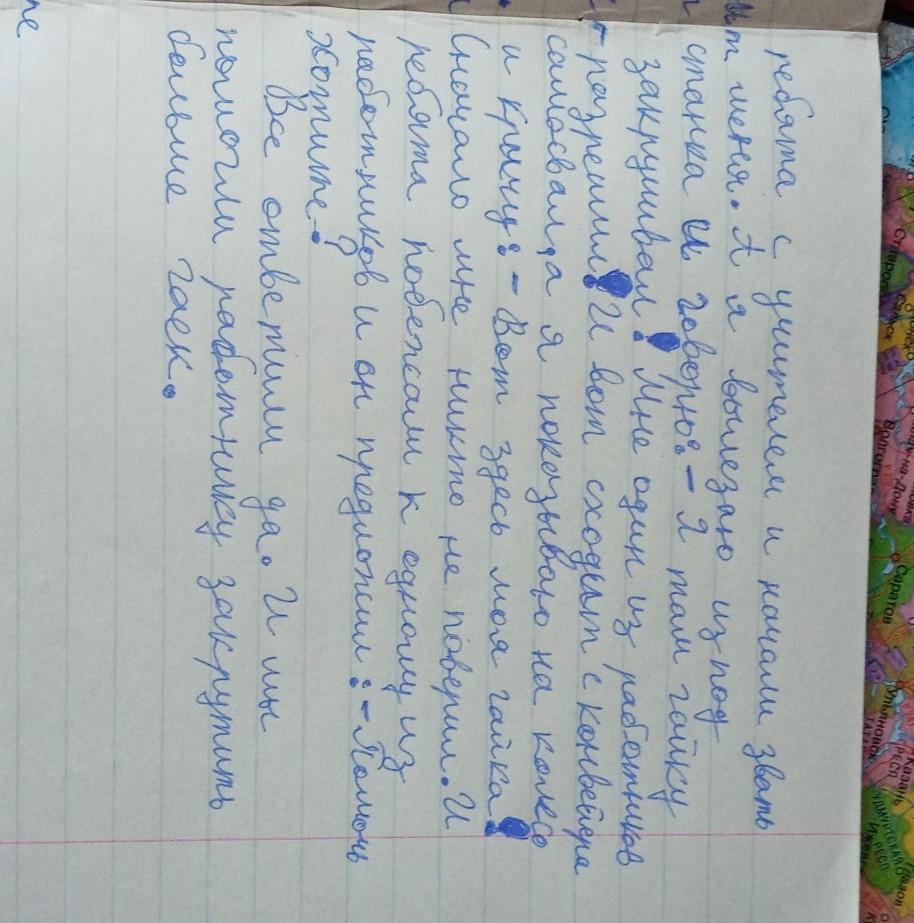 ребята с учителем и начали звать
меня. А я вылезаю из под
станка и говорю: - Я там гайку
закручивал! Мне один из работников
разрешил! И вот сходит с конвейера
самосвал, а я показываю на колесо
и кричу: - Вот здесь моя гайка!
Сначало мне никто не поверил. И
ребята побежали к одному из
работников и он предложил: - Помочь
хотите?
Все ответили да. И мы
помогли работнику закрутить
больше гаек.
Волгоград
Саратов
Ульяновск
Казань
УДМУРТСКАЯ
РЕСП